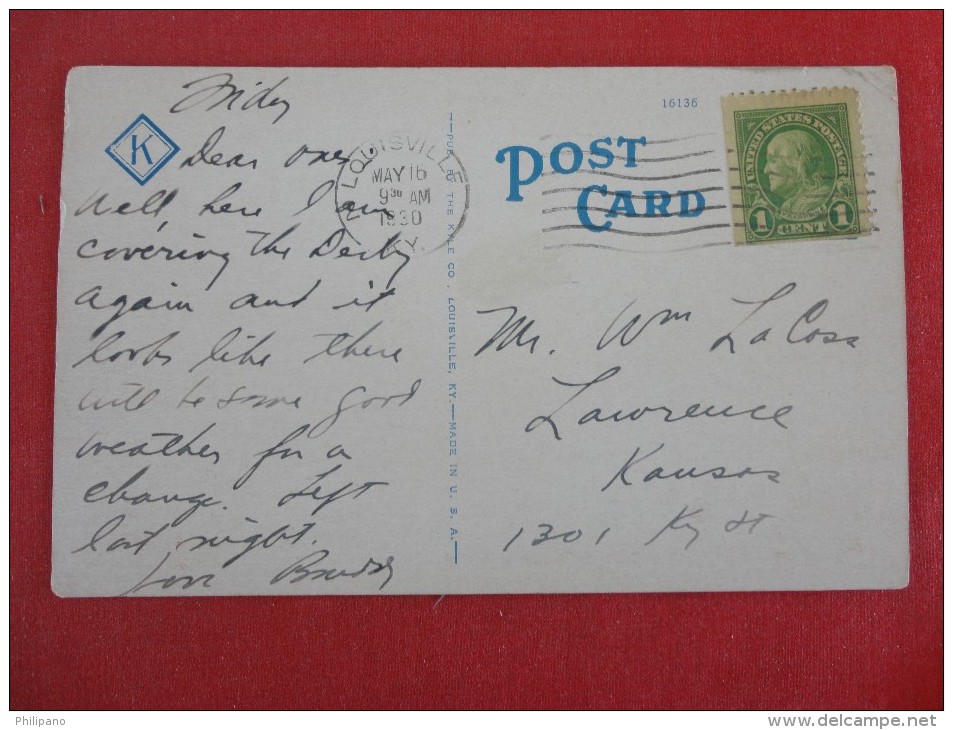 Friday
Dear ones,
Well, here I am
covering the Derby
again and it
looks like there
will be some good
weather for a
change. Left
last night.
Love
K
LOUISVILLE
MAY 16
9 30 AM
1930
KY.
PUB. BY THE KYLE CO., LOUISVILLE, KY.—MADE IN U. S. A.
16136
POST
CARD
UNITED STATES POSTAGE
1 CENT 1
Mr. Wm LaCoss
Lawrence
Kansas
1301 Ky St
Philipano
www.delcampe.net